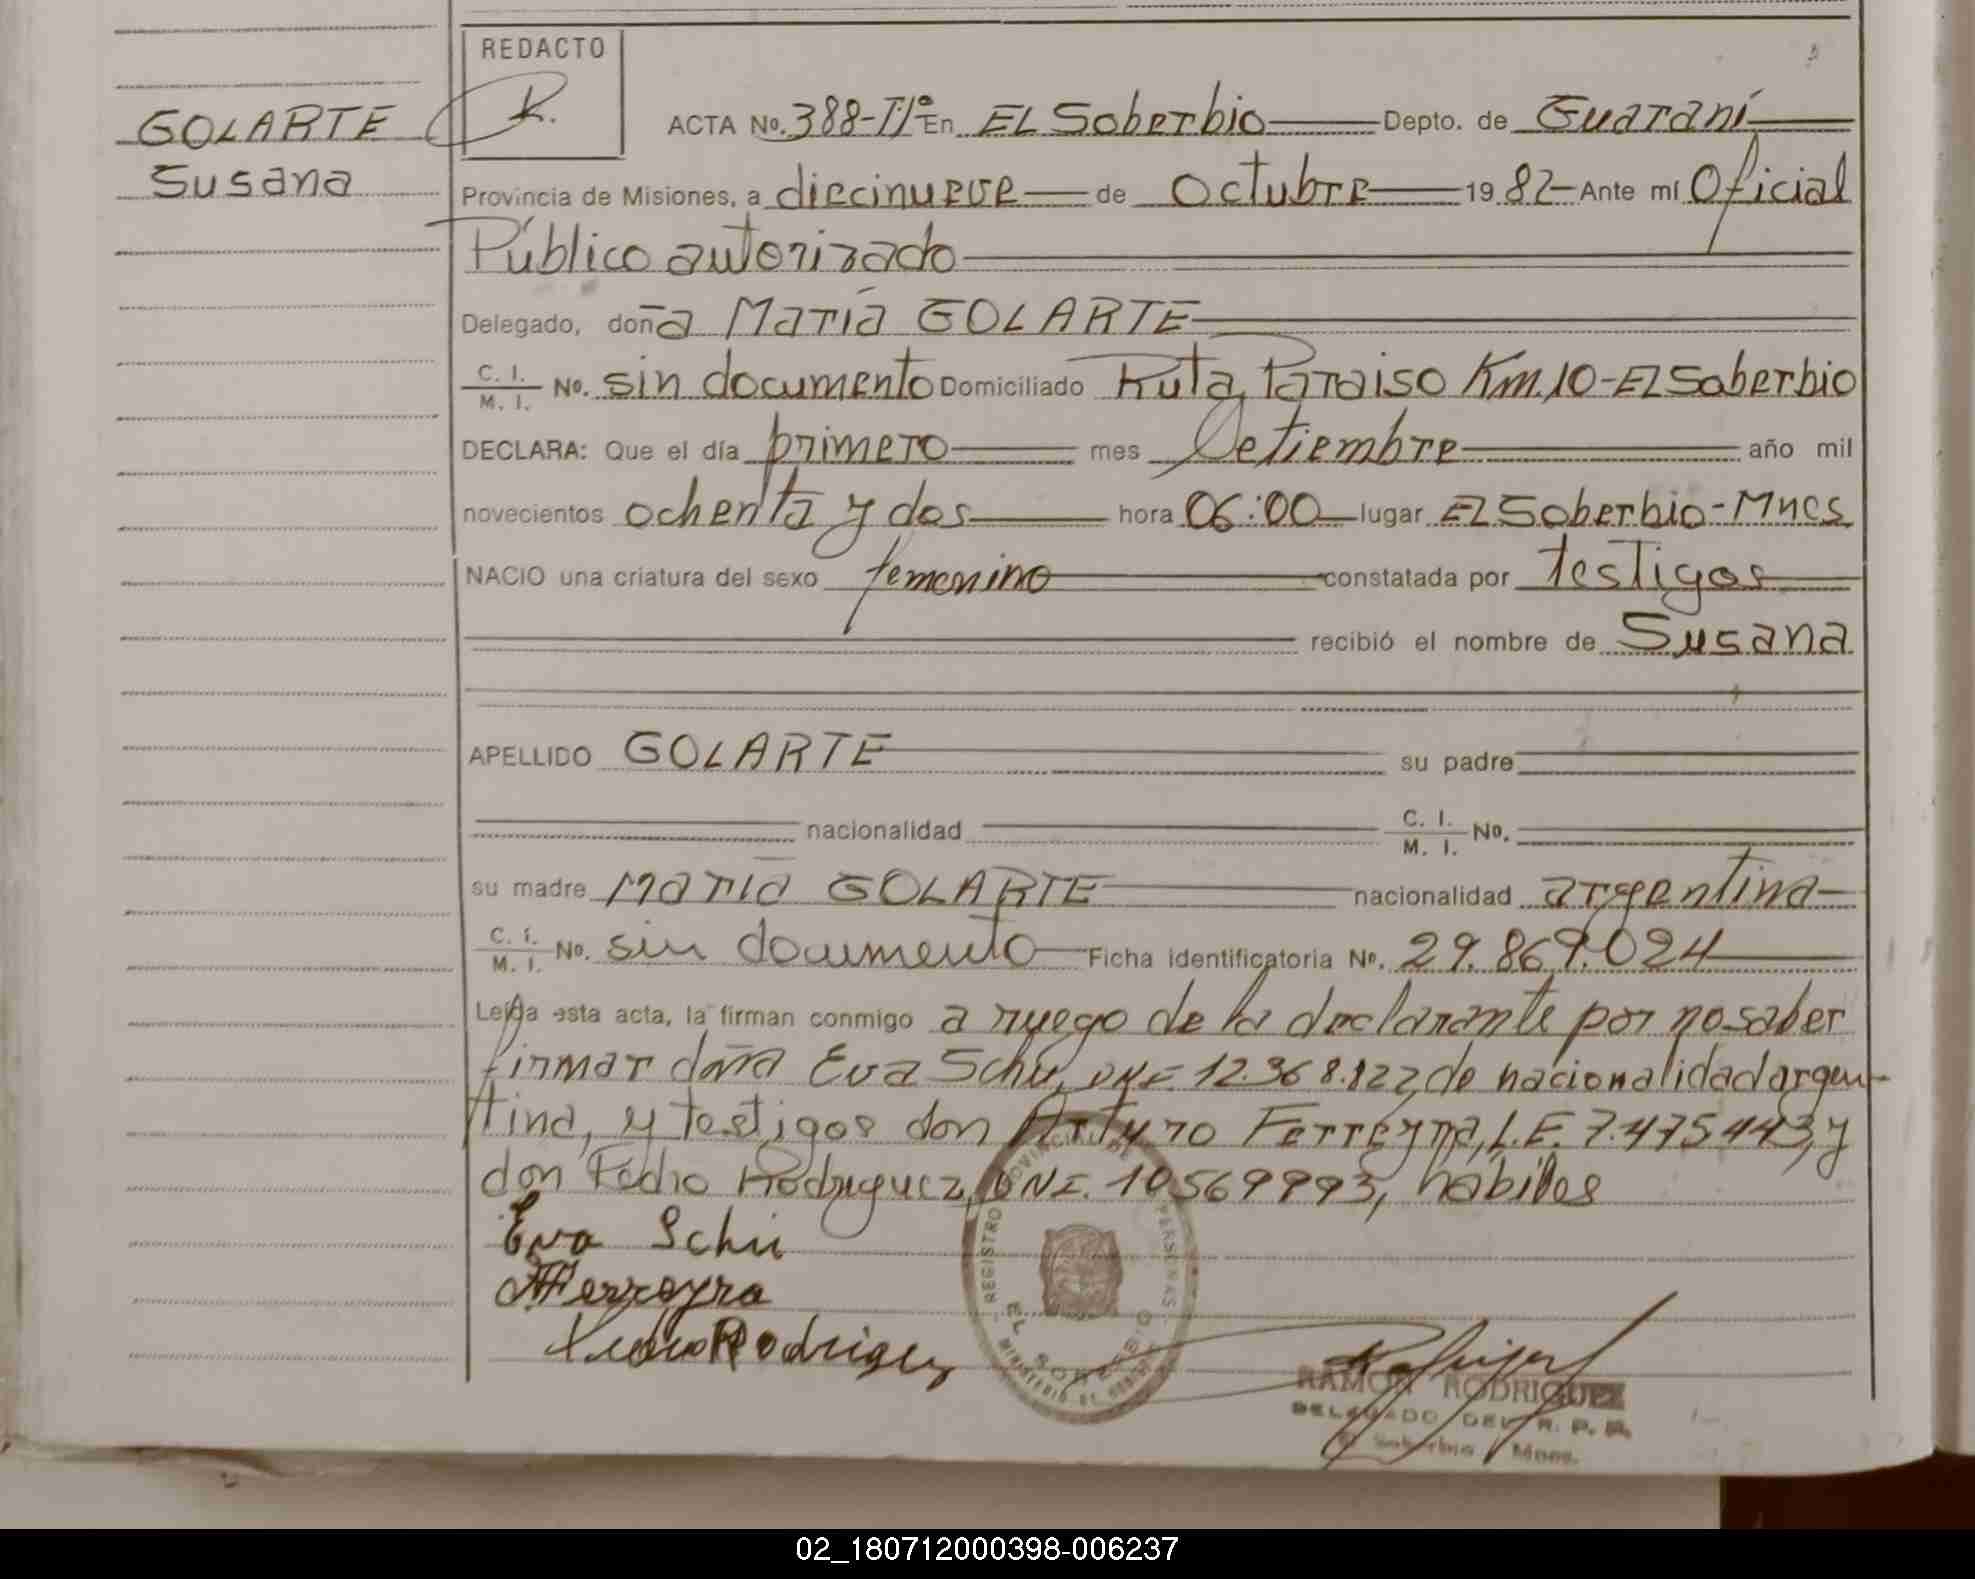 GOLARTE
Susana
REDACTO
ACTA No. 388-Tº1º En EL Soberbio Depto. de Guaraní
Provincia de Misiones, a diecinueve de Octubre 19 82 Ante mí Oficial
Público autorizado
Delegado, doña María GOLARTE
C. I. / M. I. No. sin documento Domiciliado Ruta Paraiso Km.10-El Soberbio
DECLARA: Que el día primero mes Setiembre año mil
novecientos ochenta y dos hora 06:00 lugar El Soberbio-Mnes
NACIO una criatura del sexo femenino constatada por testigos
recibió el nombre de Susana
APELLIDO GOLARTE su padre
nacionalidad C. I. / M. I. No.
su madre María GOLARTE nacionalidad argentina
C. I. / M. I. No. sin documento Ficha identificatoria No. 29.869.024
Leída esta acta, la firman conmigo a ruego de la declarante por no saber
firmar doña Eva Schu, DNI 12.368.122, de nacionalidad argen-
tina, y testigos don Arturo Ferreyra, L.E. 7.475443, y
don Pedro Rodriguez, DNI. 10569993, hábiles
Eva Schu
AFerreyra
Pedro Rodriguez
REGISTRO PROVINCIAL DE PERSONAS
EL SOBERBIO
RAMON RODRIGUEZ
DELEGADO DEL R. P. P.
El Soberbio Mnes.
02_180712000398-006237